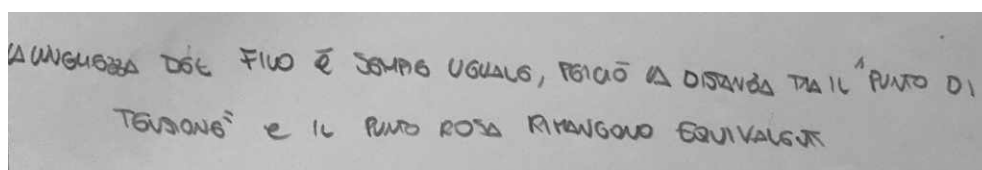 LA LUNGHEZZA DEL FILO È SEMPRE UGUALE, PERCIÒ LA DISTANZA TRA IL "PUNTO DI
TENSIONE" E IL PUNTO ROSA RIMANGONO EQUIVALENTI